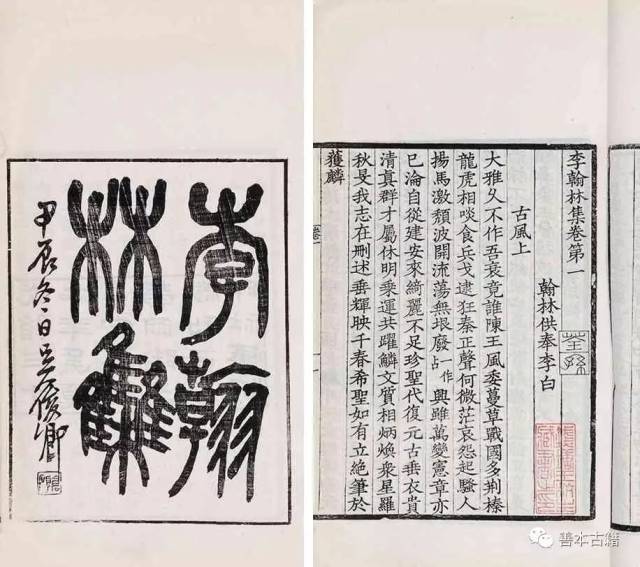 李翰
林集
甲辰冬日吳俊卿
李翰林集卷第一
翰林供奉李白
古風上
大雅久不作吾衰竟誰陳王風委蔓草戰國多荆榛
龍虎相啖食兵戈逮狂秦正聲何微茫哀怨起騷人
揚馬激頹波開流蕩無垠廢占作興雖萬變憲章亦
已淪自從建安來綺麗不足珍聖代復元古垂衣貴
清真群才屬休明乗運共躍鱗文質相炳煥衆星羅
秋旻我志在刪述垂輝映千春希聖如有立絶筆於
獲麟
善本古籍